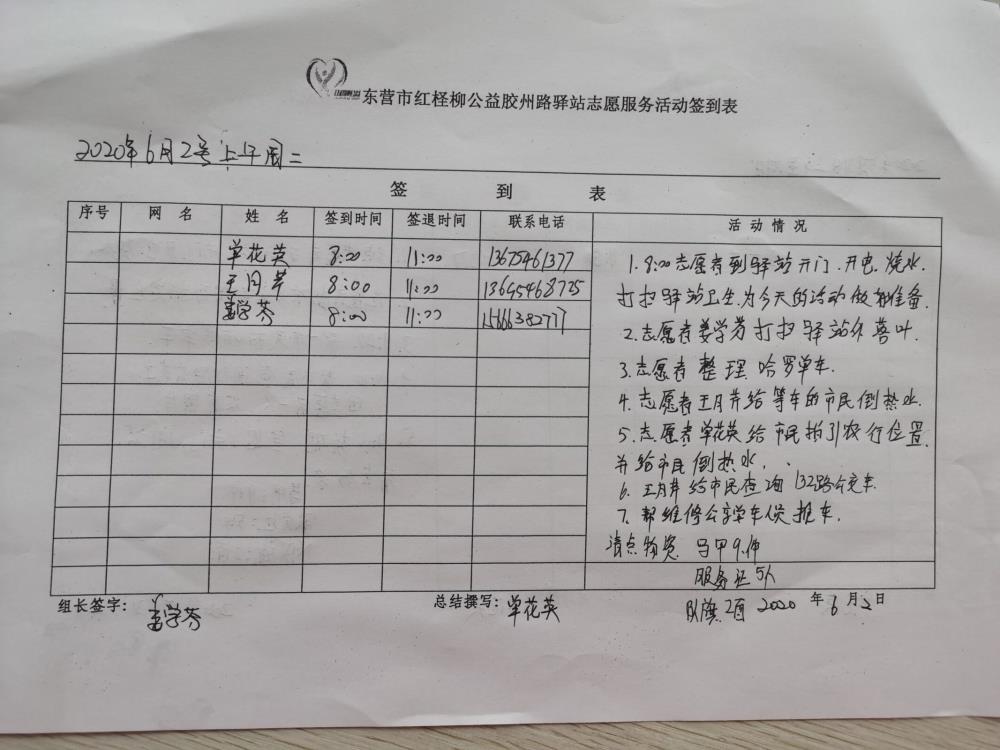 东营市红柽柳公益胶州路驿站志愿服务活动签到表
2020年6月2号上午周二
签 到 表
序号 网 名 姓 名 签到时间 签退时间 联系电话 活 动 情 况
单花英 8:00 11:00 13675461377
王月芹 8:00 11:00 13695468725
盖学芬 8:00 11:00 15666382777
1.8:00志愿者到驿站开门.开电.烧水.
打扫驿站卫生.为今天的活动做准备.
2.志愿者姜学芳打扫驿站外落叶.
3.志愿者整理哈罗单车.
4.志愿者王月芹给等车的市民倒热水.
5.志愿者单花英给市民指引农行位置
并给市民倒热水.
6.王月芹给市民查询132路公交车.
7.帮维修公享单车人员推车.
清点物资 马甲9件
服务证5个
队旗2面 2020年6月2日
组长签字: 盖学芬
总结撰写: 单花英